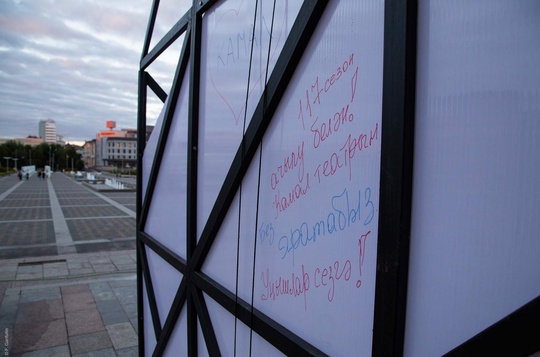 КАМАЛ
117 сезон
ачылу белән!
Камал театрын
без яратабыз
Уңышлар сезгә!